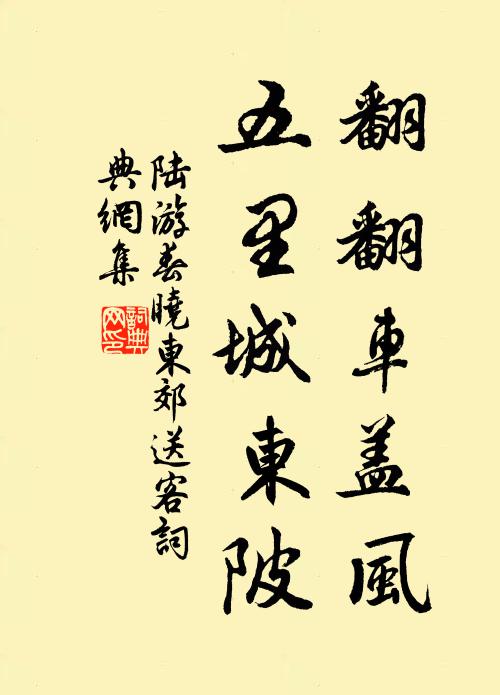 翻翻車盖風
五里城東陂
陆游春曉東郊送客詞
典網集
詞典
网印